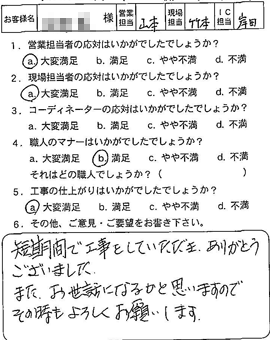 お客様名 様 営業担当 山本 現場担当 竹本 IC担当 岸田
1．営業担当者の応対はいかがでしたでしょうか？
a. 大変満足 b. 満足 c. やや不満 d. 不満
2．現場担当者の応対はいかがでしたでしょうか？
a. 大変満足 b. 満足 c. やや不満 d. 不満
3．コーディネーターの応対はいかがでしたでしょうか？
a. 大変満足 b. 満足 c. やや不満 d. 不満
4．職人のマナーはいかがでしたでしょうか？
a. 大変満足 b. 満足 c. やや不満 d. 不満
それはどの職人でしょうか？（ ）
5．工事の仕上がりはいかがでしたでしょうか？
a. 大変満足 b. 満足 c. やや不満 d. 不満
6．その他、ご意見・ご要望をお書き下さい。
短期間で工事をしていただき、ありがとう
ございました。
また、お世話になるかと思いますので
その時もよろしくお願いします。